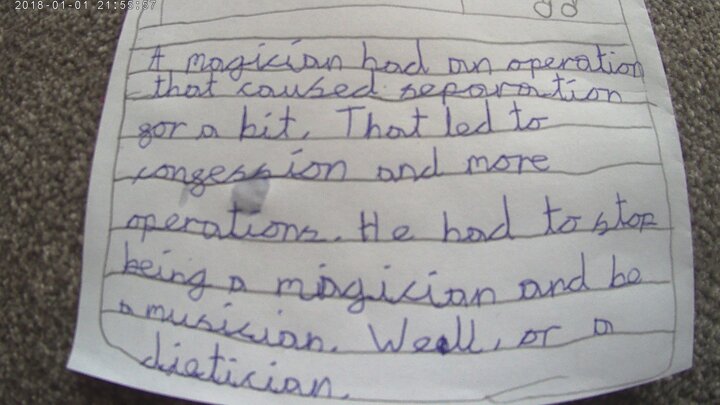 2018-01-01 21:55:57
A magician had an operation
that caused separation
for a bit. That led to
confession and more
operations. He had to stop
being a magician and be
a musician. Well, or a
dietician.